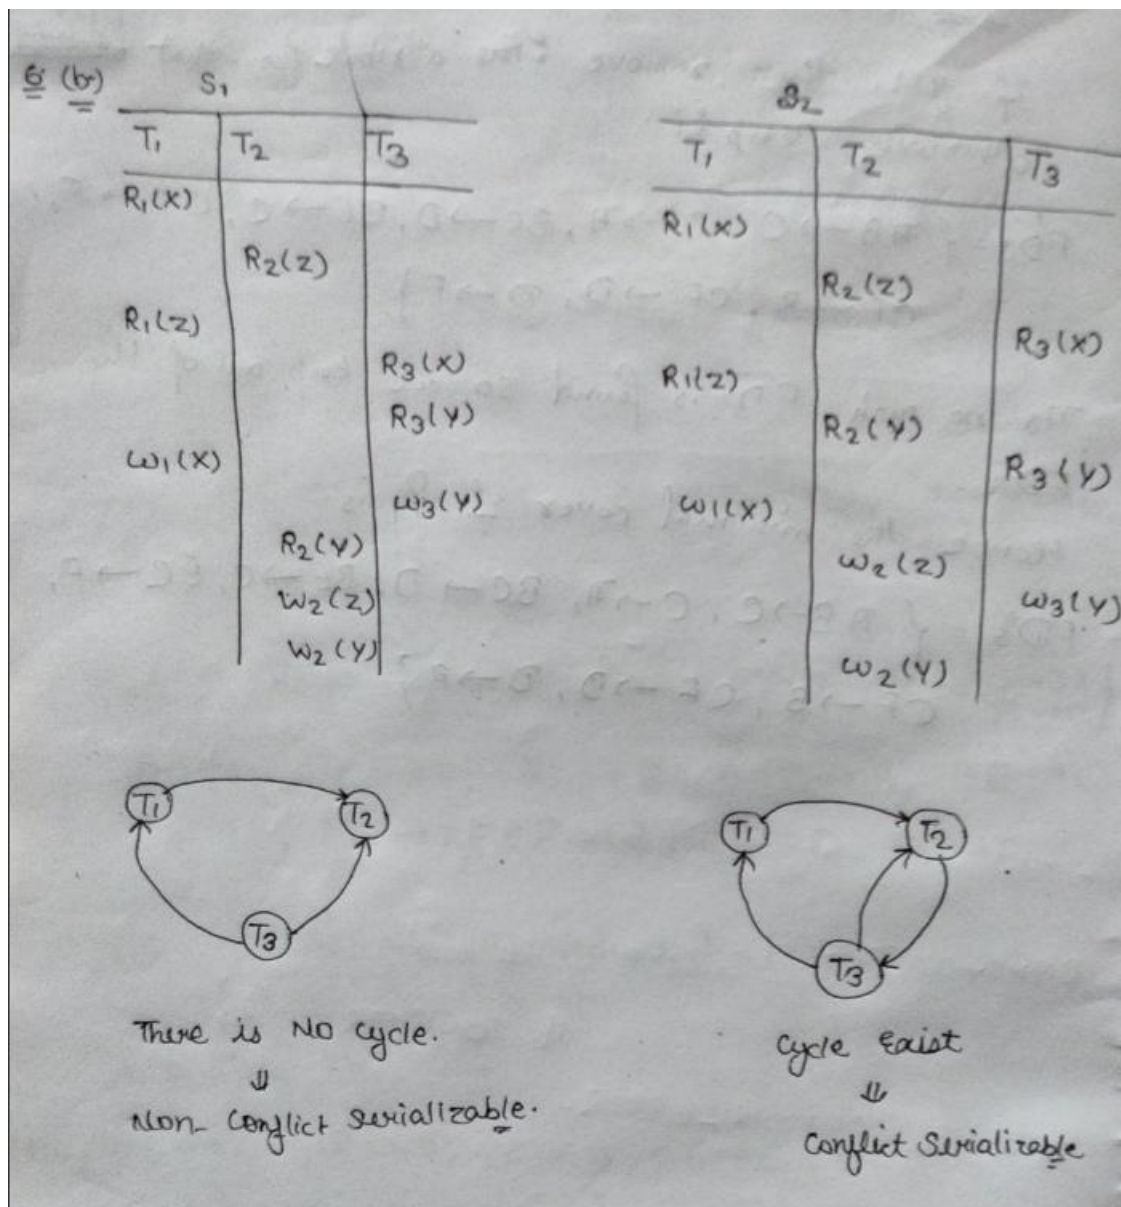 6 (b) S1
T1 T2 T3
R1(X)
R2(Z)
R1(Z)
R3(X)
R3(Y)
W1(X)
W3(Y)
R2(Y)
W2(Z)
W2(Y)
S2
T1 T2 T3
R1(X)
R2(Z)
R3(X)
R1(Z)
R2(Y)
R3(Y)
W1(X)
W2(Z)
W3(Y)
W2(Y)
T1 T2
T3
There is NO cycle.
⇓
Non- Conflict Serializable.
T1 T2
T3
Cycle Exist
⇓
Conflict Serializable